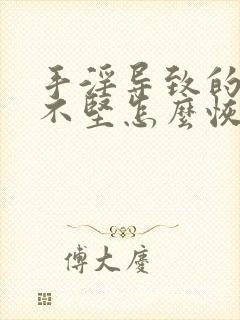 手淫导致的
不堅怎麽恢
傅大慶